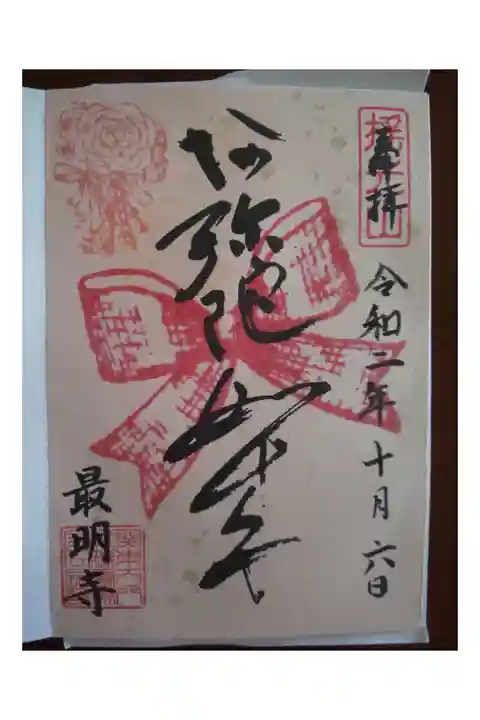 奉拝
令和二年十月六日
阿弥陀如来
最明寺